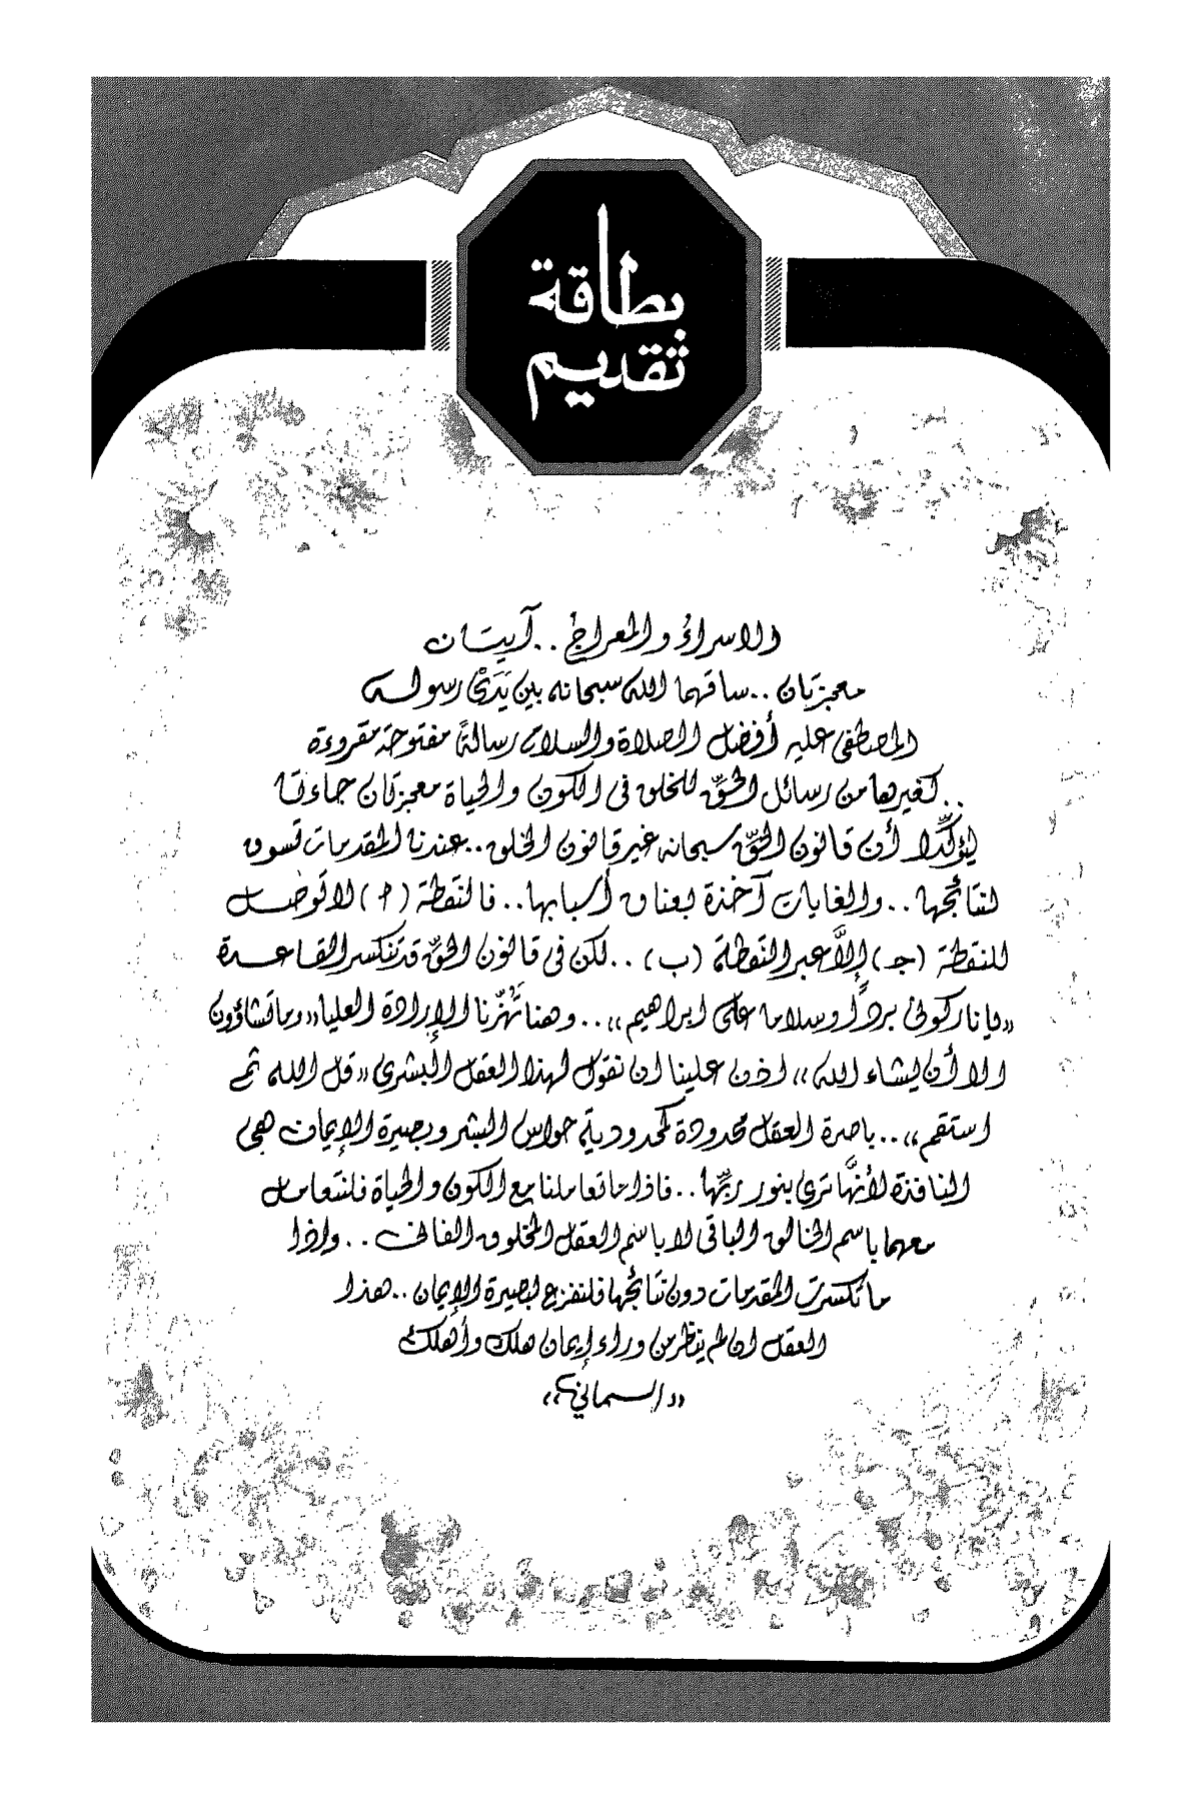 بطاقة
تقديم
والاسراءُ والمعراج .. آيتان
معجزتان .. ساقهما الله سبحانه بين يَدَيْ رسوله
المصطفى عليه أفضل الصلاة والسلام رسالةً مفتوحة مقروءة
.. كغيرها من رسائل الحقّ للخلق فى الكون والحياة معجزتان جاءتا
ليؤكّدا أن قانون الحقّ سبحانه غير قانون الخلق .. عندنا المقدمات تسوق
لنتائجها .. والغايات آخذة بعناق أسبابها .. فالنقطة (أ) لا توصل
للنقطة (جـ) إلاَّ عبر النقطة (ب) .. لكن فى قانون الحقّ قد تنكسر القاعدة
«يا نار كونى برداً وسلاما على ابراهيم» .. وهنا تهُزّنا الإرادة العليا «وما تشاؤون
الا أن يشاء الله» اذن علينا ان نقول لهذا العقل البشرى «قل الله ثم
استقم» .. باصرة العقل محدودة كمحدودية حواس البشر وبصيرة الإيمان هى
النافذة لأنهَّا ترى بنور ربّها .. فاذا ما تعاملنا مع الكون والحياة فلنتعامل
معهما باسم الخالق الباقى لا باسم العقل المخلوق الفانى .. واذا
ما تكسرت المقدمات دون نتائجها فلنفزع لبصيرة الإيمان .. هذا
العقل ان لم ينظر من وراء إيمان هلك وأهلك
«السمانى»